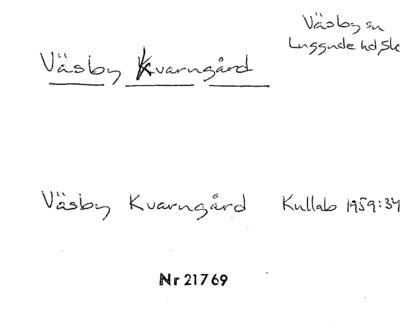 Väsby sn
Luggude hd Sk
Väsby Kvarngård
Väsby Kvarngård Kullab 1959:34
Nr 21769